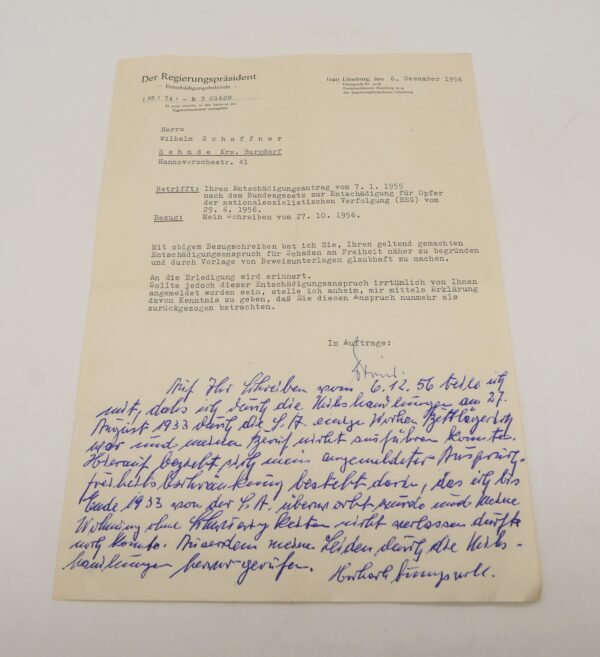 Der Regierungspräsident
- Entschädigungsbehörde -
(24a) Lüneburg, den 6. Dezember 1956
74 - h 3 01628
Herrn
Wilhelm Schaffner
Sehnde Krs. Burgdorf
Hannoverschestr. 41
Betrifft: Ihren Entschädigungsantrag vom 7. 1. 1955
nach dem Bundesgesetz zur Entschädigung für Opfer
der nationalsozialistischen Verfolgung (BEG) vom
29. 6. 1956.
Bezug: Mein Schreiben vom 27. 10. 1956.
Mit obigem Bezugschreiben bat ich Sie, Ihren geltend gemachten
Entschädigungsanspruch für Schaden an Freiheit näher zu begründen
und durch Vorlage von Beweisunterlagen glaubhaft zu machen.
An die Erledigung wird erinnert.
Sollte jedoch dieser Entschädigungsanspruch irrtümlich von Ihnen
angemeldet worden sein, stelle ich anheim, mir mittels Erklärung
davon Kenntnis zu geben, daß Sie diesen Anspruch nunmehr als
zurückgezogen betrachten.
Im Auftrage:
Auf Ihr Schreiben vom 6.12.56 teile ich
mit, dahs ich durch die Mihshandlungen am 27.
August 1933 durch die S.A. einige Wochen Bettlägerich
war und meinen Beruf nicht ausführen konnte.
Hierauf bezieht sich mein angemeldeter Anspruch.
freiheits besteht darin, das ich bis
Ende 1933 von der S.A. überwacht wurde und meine
Wohnung ohne nicht verlassen durfte
noch konnte. Auserdem meine Leiden durch die Mihs-
handlungen hervorgerufen. Hochachtungsvoll.